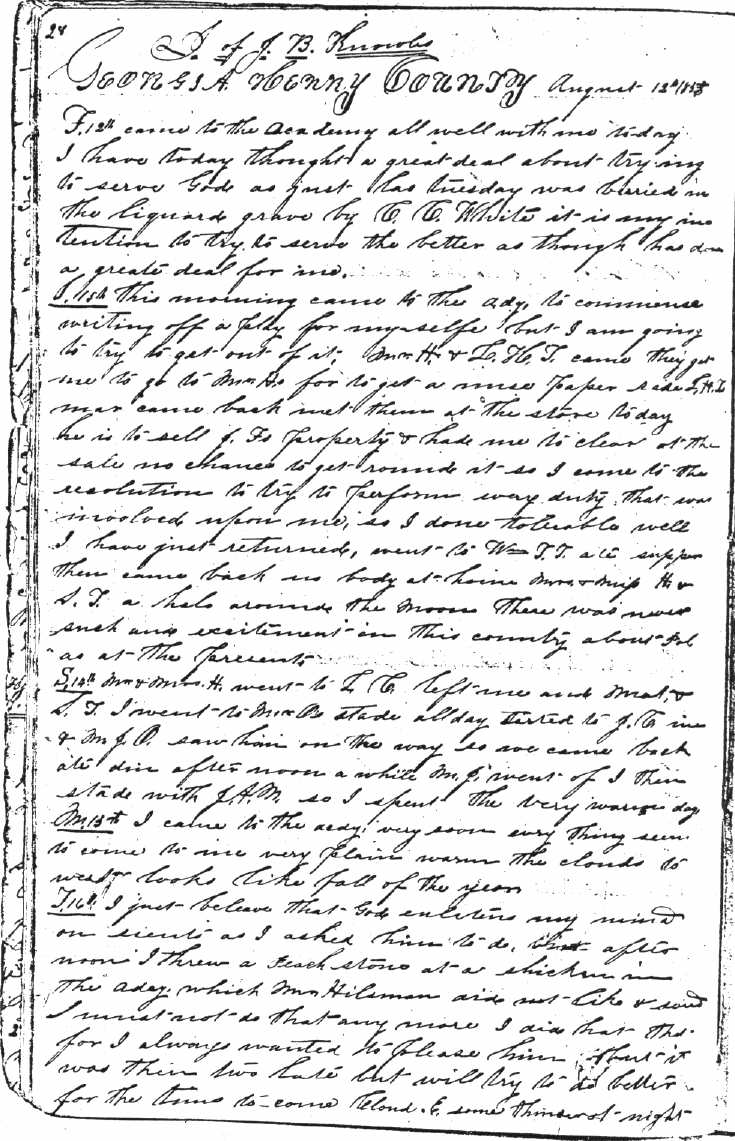 28
D. of J. B. Knowles
GEORGIA HENRY COUNTY August 12th
F. 12th came to the academy all well with me to day
I have today thought a great deal about trying
to serve God as just las tuesday was burried in
the liquard grave by C. C. White it is my in
tention to try to serve the better as though has don
a greate deal for me.
this morning came to the ady, to commense
writing off a play for my-selfe but I am going
to try to get out of it, Mr. H. & L. H. T. came they get
me to go to Mr. Hs for to get a nuse paper
mar came back met them at the store today
he is to sell J. Fs property & hade me to clear at the
sale no chance to get round it so I come to the
resolution to try to perform evry duty that was
involved upon me, so I done tolerable well
I have just returned, went to Wm T. T. ate supper
then came back no body at home Mrs. & Miss H. &
S. T. a halo around the moon there was never
such and excitement in this county about
as at the presents
S. 14th Mr & Mrs. H. went to L C. left me and Mat. &
S. T. I went to Mr Bs stade all day started to J. C in
& M. J. P. saw him on the way so we came back
ate din after noon a while M. J. went of I then
stade with J. A. M. so I spent the very warm day
M. 15th I came to the acdy. very soon evry thing seem
to come to me very plain warm the clouds to
west looks like fall of the year
T. 16th I just beleave that God enlitens my mind
on sients as I asked him to do, after
noon I threw a Peach stone at a chicken in
the ady. which Mr. Hilsman did not like & said
I must not do that any more I did hat that
for I always wanted to please him, but it
was then two late but will try to do better
for the time to come Cloud. E. some thunder at night